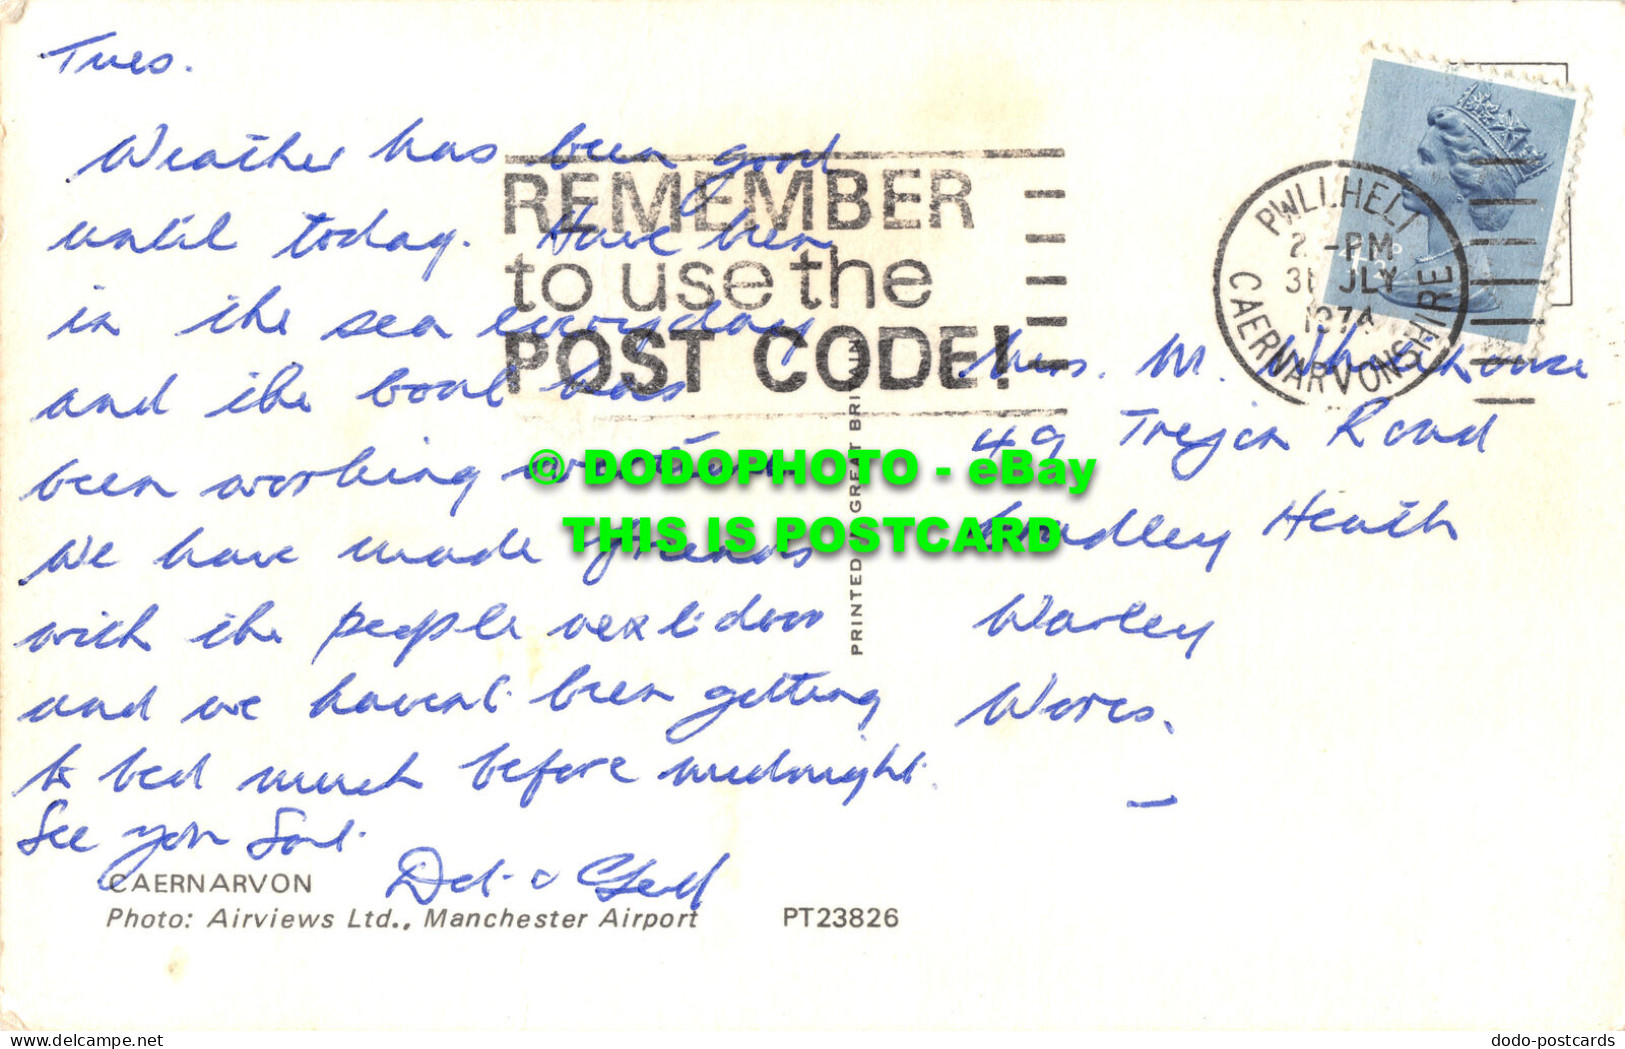 Tues.
Weather has been good
until today. Have been
in the sea everyday
and the boat has
been working
We have made friends
with the people next door
and we havent been getting
to bed much before midnight.
See you Sat.
CAERNARVON
Photo: Airviews Ltd., Manchester Airport PT23826
REMEMBER
to use the
POST CODE!
PWLLHELI
2 -PM
31 JLY
1974
CAERNARVONSHIRE
PRINTED GREAT BRI
Mrs. M. Whitehouse
49 Road
Heath
Warley
Worcs.
© DODOPHOTO - eBay
THIS IS POSTCARD
www.delcampe.net
dodo-postcards